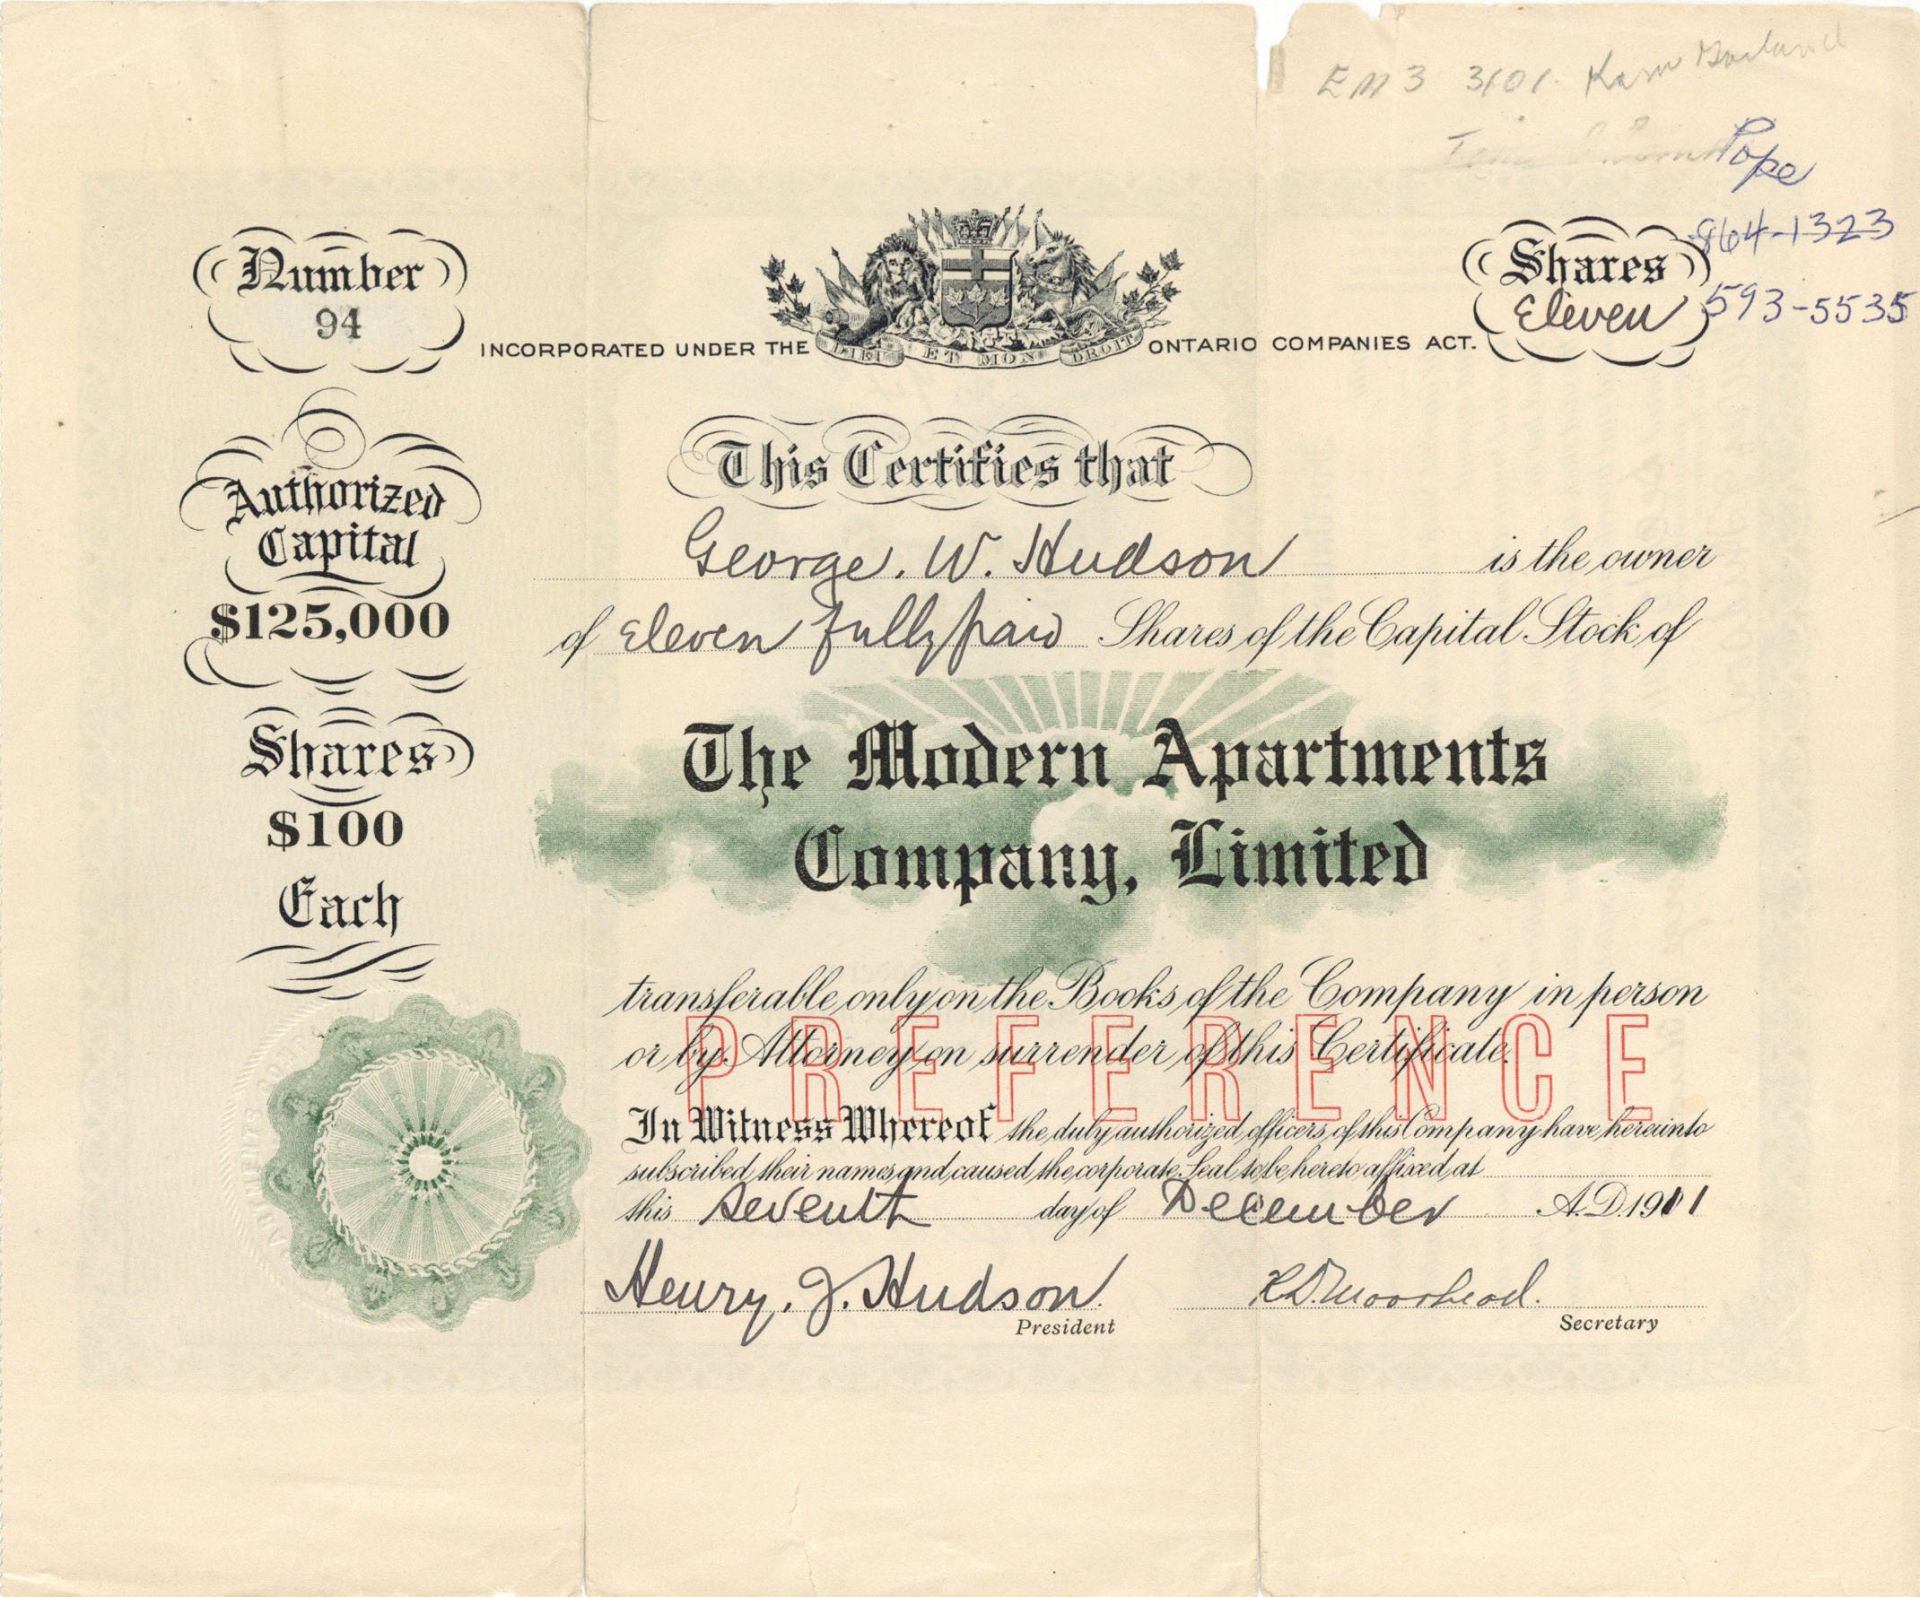 EM3 3101.
Pope
864-1323
593-5535
Number
94
Shares
Eleven
INCORPORATED UNDER THE ONTARIO COMPANIES ACT.
DIEU ET MON DROIT
Authorized
Capital
$125,000
Shares
$100
Each
This Certifies that
George. W. Hudson is the owner
of Eleven fully paid Shares of the Capital Stock of
The Modern Apartments
Company, Limited
transferable only on the Books of the Company in person
or by Attorney on surrender of this Certificate.
PREFERENCE
In Witness Whereof the duly authorized officers of this Company have hereunto
subscribed their names and caused the corporate Seal to be hereto affixed at
this seventh day of December A.D. 1911
Henry. J. Hudson.
President
Moorhead.
Secretary